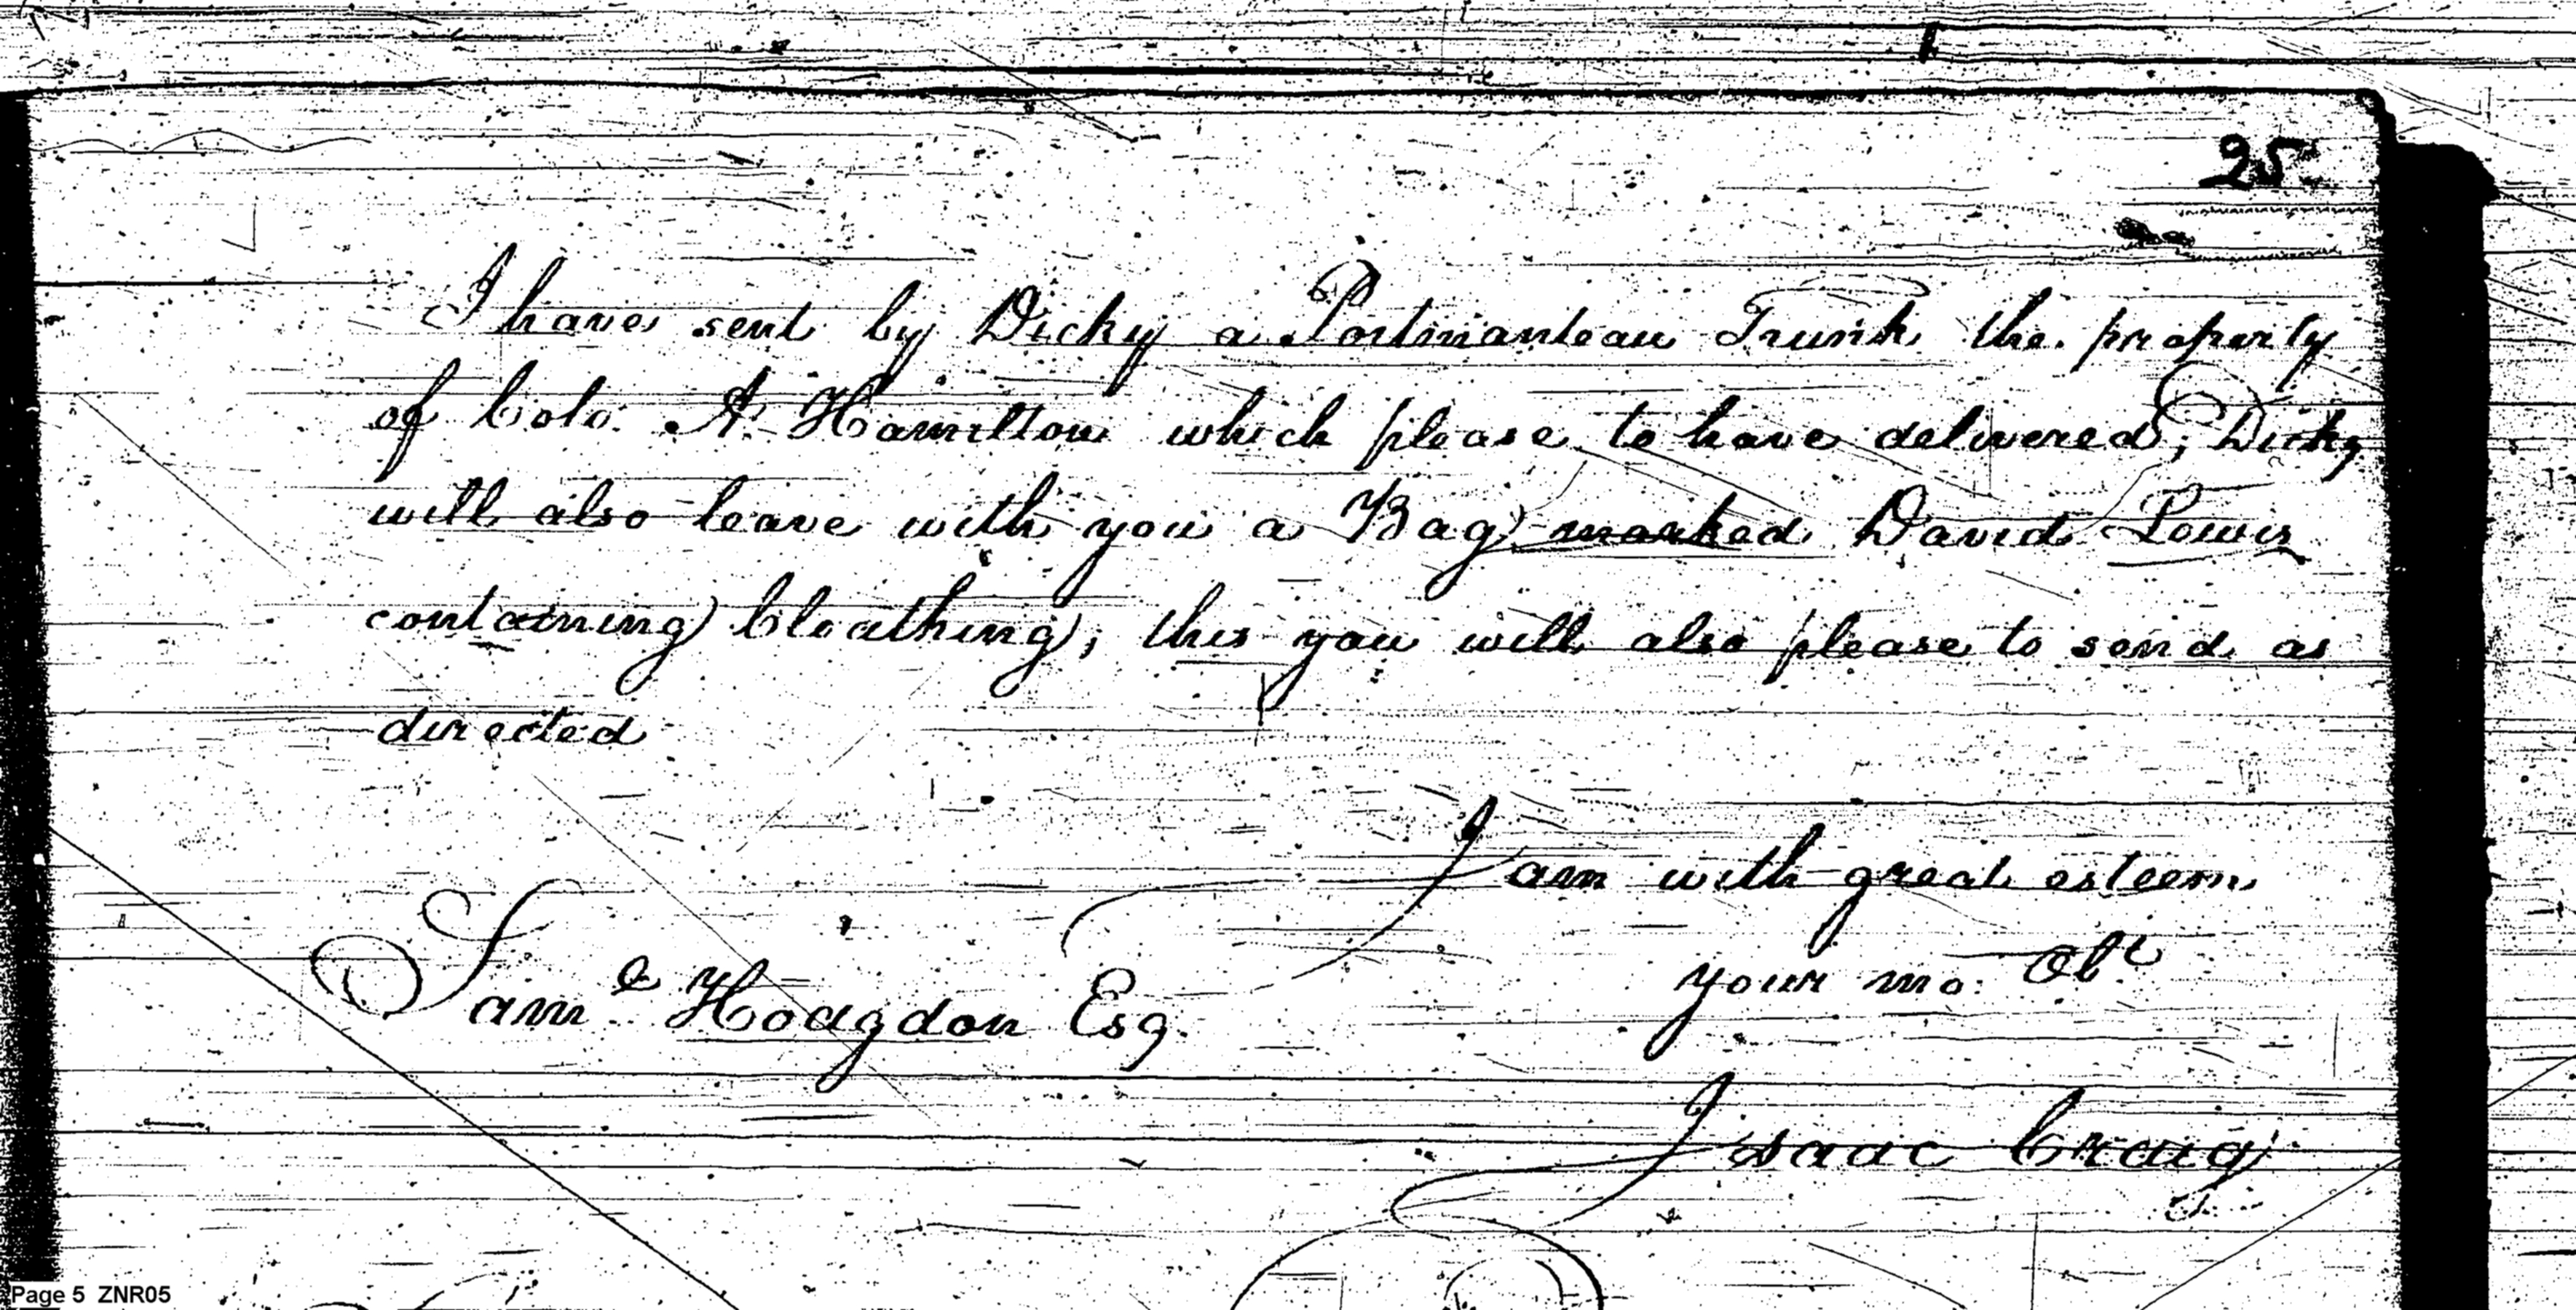 25
I have sent by Dicky a Portmanteau Trunk the property
of Colo. A. Hamilton which please to have delivered; Dicky
will also leave with you a Bag marked David Lewis
containing Cloathing; this you will also please to send as
directed
I am with great esteem
your mo: Obt
Saml Hodgdon Esq.
Isaac Craig
Page 5 ZNR05